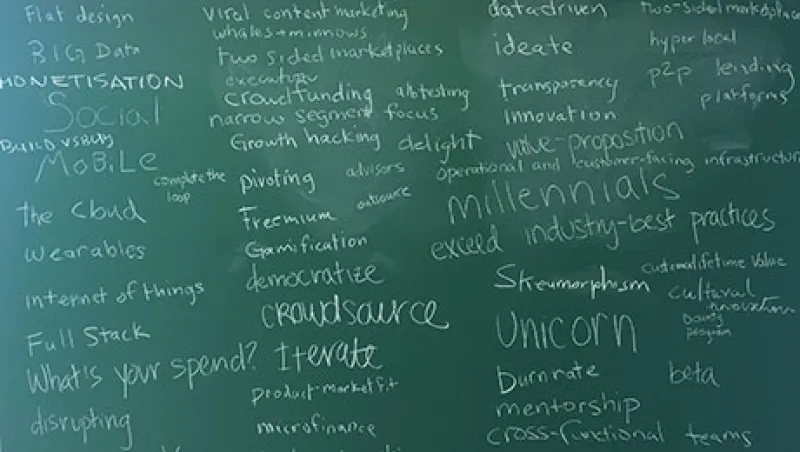 Flat design
BIG Data
MONETISATION
Social
BUILD VS BUY
MOBILE
complete the
loop
the Cloud
wearables
internet of things
Full Stack
What's your spend?
disrupting
Viral content marketing
whales + minnows
two sided marketplaces
execution
crowdfunding
a/b testing
narrow segment focus
Growth hacking
delight
pivoting
advisors
Freemium
outsource
Gamification
democratize
crowdsource
Iterate
product-market fit
microfinance
data driven
two-sided marketplaces
ideate
hyper local
transparency
p2p lending
platforms
innovation
value-proposition
operational and customer-facing infrastructure
millennials
exceed industry-best practices
Skeumorphism
customer lifetime value
cultural
innovation
Unicorn
bounty
program
Burnrate
beta
mentorship
cross-functional teams